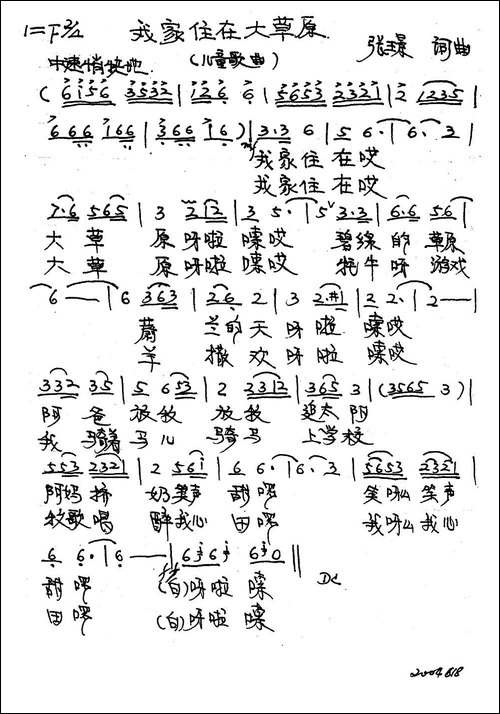 1=F 2/4 我家住在大草原
中速 俏快地 (儿童歌曲) 张 词曲
(6156 3532 | 126 6 | 5653 2321 | 2 1235 |
666 166 | 366 16 ) | 3.3 6 | 5 6. | 6. 3 |
我家住 在哎
我家住 在哎
7.6 565 | 3 212 | 3 5. | 5 3.3 | 6.6 56 |
大草 原呀啦 嗦哎 碧绿的 草原
大草 原呀啦 嗦哎 牦牛呀 游戏
6 — | 6 363 | 26 2 | 3 2.#1 | 2 2. | 2 — |
蔚 兰的天 呀啦 嗦哎
羊 撒欢 呀啦 嗦哎
332 35 | 5 653 | 2 2312 | 365 3 | (3565 3) |
阿爸 放牧 放牧 追太阳
我骑着 马儿 骑马 上学校
553 2321 | 2 561 | 6 6. | 6. 3 | 5653 2321 |
阿妈挤 奶笑声 甜啰 笑呀么笑声
牧歌唱 醉我心 田啰 我呀么我心
6 6. | 6 — | 6 6 6 0 ||
甜啰 (白)呀啦 嗦 D.C
田啰 (白)呀啦 嗦
2004 6/8